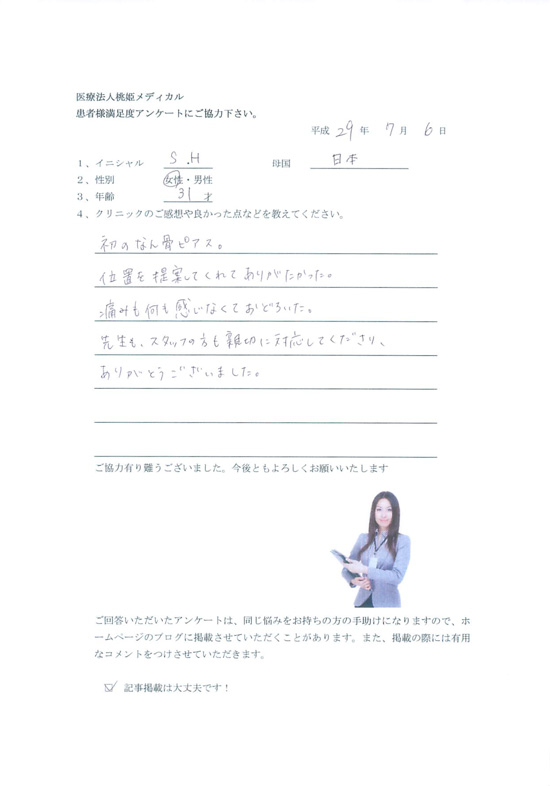 医療法人桃姫メディカル
患者様満足度アンケートにご協力下さい。
平成 29 年 7 月 6 日
1、イニシャル S.H 母国 日本
2、性別 女性・男性
3、年齢 31 才
4、クリニックのご感想や良かった点などを教えてください。
初のなん骨ピアス。
位置を提案してくれてありがたかった。
痛みも何も感じなくておどろいた。
先生も、スタッフの方も親切に対応してくださり、
ありがとうございました。
ご協力有り難うございました。今後ともよろしくお願いいたします
ご回答いただいたアンケートは、同じ悩みをお持ちの方の手助けになりますので、ホ
ームページのブログに掲載させていただくことがあります。また、掲載の際には有用
なコメントをつけさせていただきます。
☑ 記事掲載は大丈夫です！